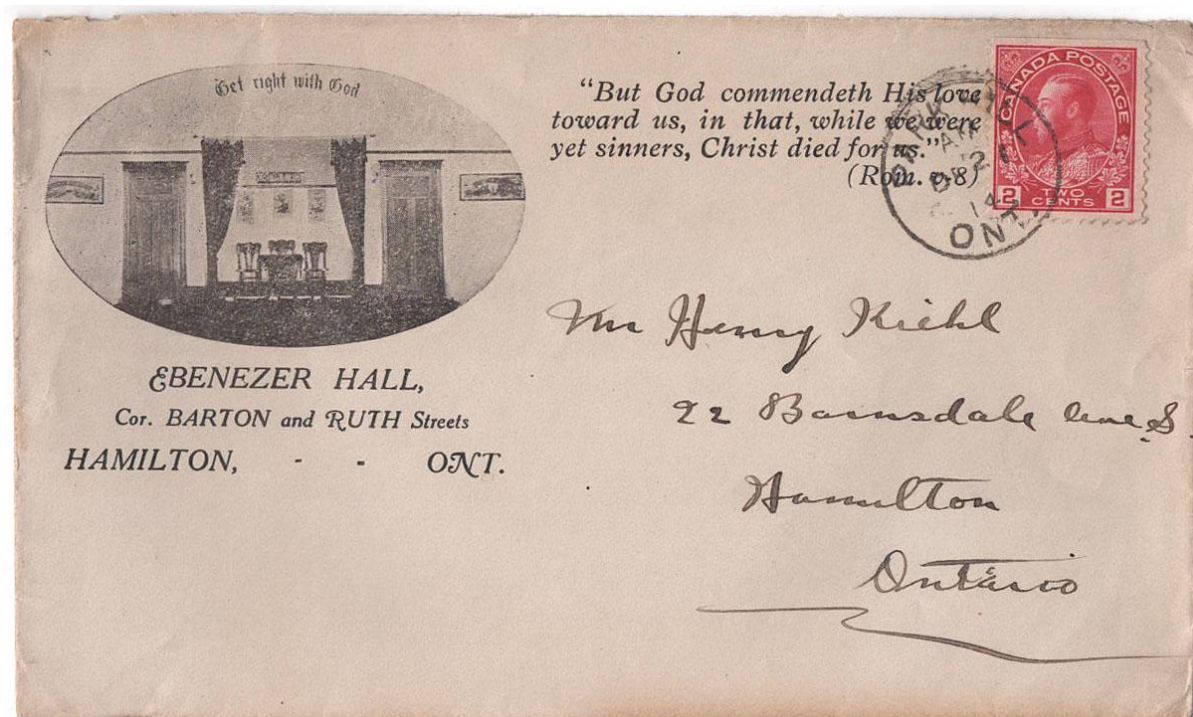 Get right with God
EBENEZER HALL,
Cor. BARTON and RUTH Streets
HAMILTON, - - ONT.
"But God commendeth His love
toward us, in that, while we were
yet sinners, Christ died for us."
(Rom. v-8)
CANADA POSTAGE
2 TWO CENTS 2
ONT.
14
Mr Henry Kiehl
22 Barnsdale Ave. S.
Hamilton
Ontario